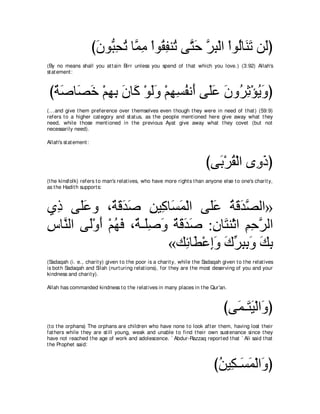 (لَن تَنَالُواْ الْبِرَّ حَتَّى تُنفِقُواْ مِمَّا تُحِبُّونَ)
(By no means shall you attain Birr unless you spend of that which you love.) (3:92) Allah's
statement:
(وَيُؤْثِرُونَ عَلَى أَنفُسِهِمْ وَلَوْ كَانَ بِهِمْ خَصَاصَةٌ)
(...and give them preference over themselves even though they were in need of that) (59:9)
refers to a higher category and status, as the people mentioned here give away what they
need, while those mentioned in the previous Ayat give away what they covet (but not
necessarily need).
Allah's statement:
(ذَوِى الْقُرْبَى)
(the kinsfolk) refers to man's relatives, who have more rights than anyone else to one's charity,
as the Hadith supports:
«الصَّدَقَةُ عَلَى الْمَسَاكِينِ صَدَقَةٌ، وعَلَى ذِي
الرَّحِمِ اثْنَتَانِ: صَدَقَةٌ وَصِلَــةٌ، فَهُمْ أَوْلَى النَّاسِ
بِكَ وَبِبِرِّكَ وَإِعْطَائِك»
(Sadaqah (i. e., charity) given to the poor is a charity, while the Sadaqah given to the relatives
is both Sadaqah and Silah (nurturing relations), for they are the most deserving of you and your
kindness and charity).
Allah has commanded kindness to the relatives in many places in the Qur'an.
(وَالْيَتَـمَى)
(to the orphans) The orphans are children who have none to look after them, having lost their
fathers while they are still young, weak and unable to find their own sustenance since they
have not reached the age of work and adolescence. `Abdur-Razzaq reported that `Ali said that
the Prophet said:
(وَالْمَسَـكِينُ)